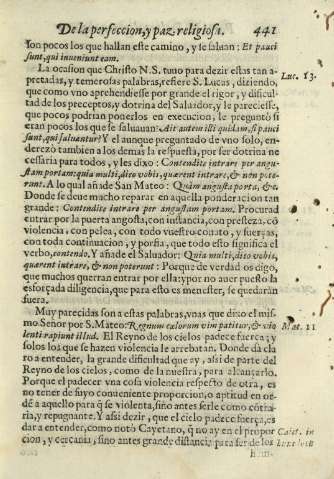 De la perfeccion, y paz religiosa. 441
son pocos los que hallan este camino, y se saluan: Et pauci
sunt, qui inueniunt eam.
La ocasion que Christo N.S. tuuo para dezir estas tan a-
pretadas, y temerosas palabras, refiere S. Lucas, diziendo, Luc. 13.
que como vno aprehendiesse por grande el rigor, y dificul-
tad de los preceptos, y dotrina del Saluador, y le pareciesse,
que pocos podrian ponerlos en execucion, le preguntò si
eran pocos los que se saluauan: Ait autem illi quidam, si pauci
sunt, qui saluantur? Y el aunque preguntado de vno solo, en-
dereçò tambien a los demas la respuesta, por ser dotrina ne
cessaria para todos, y les dixo: Contendite intrare per angu-
stam portam: quia multi, dico vobis, quærent intrare, & non pote-
runt. A lo qual añade San Mateo: Quàm angusta porta, &c.
Donde se deue mucho reparar en aquella ponderacion tan
grande: Contendite intrare per angustam portam. Procurad
entrar por la puerta angosta, con instancia, con presteza, cõ
violencia, con pelea, con todo vuestro conato, y fuerças,
con toda continuacion, y porfia, que todo esto significa el
verbo, contendo. Y añade el Saluador: Quia multi, dico vobis,
quærent intrare, & non poterunt: Porque de verdad os digo,
que muchos querran entrar por ella: y por no auer puesto la
esforçada diligencia, que para esto es menester, se quedaràn
fuera.
Muy parecidas son a estas palabras, vnas que dixo el mis-
mo Señor por S. Mateo: Regnum cælorum vim patitur, & vio Mat. 11
lenti rapiunt illud. El Reyno de los cielos padece fuerça; y
solos los que se hazen violencia le arrebatan. Donde da cla
ro a entender, la grande dificultad que ay, assi de parte del
Reyno de los cielos, como de la nuestra, para alcançarlo.
Porque el padecer vna cosa violencia respecto de otra, es
no tener de suyo conueniente proporcion, o aptitud en or-
dẽ a aquello para q̃ se violenta, sino antes serle como cõtra-
ria, y repugnante. Y assi dezir, que el cielo padece fuerça, es
dar a entender, como notò Cayetano, q̃ no ay en el propor Caiet. in
cion, y cercania, sino antes grande distancia para ser de los